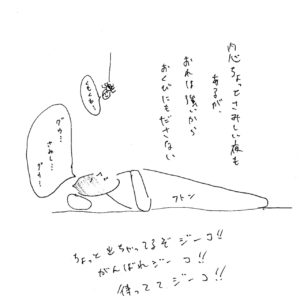 内心ちょっとさみしい夜も
あるが、
おれは強いから
おくびにもださない
くもくも…
グゥ…
さみし…
グゥ…
フトン
ちょっと出ちゃってるぞジーコ!!
がんばれジーコ!!
待っててジーコ!!